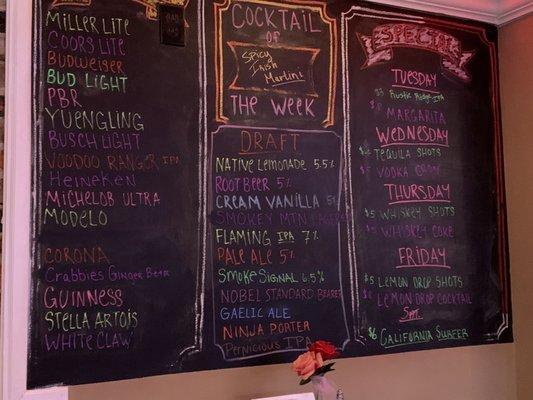 Miller Lite
Coors Lite
Budweiser
Bud Light
PBR
Yuengling
Busch Light
Voodoo Ranger IPA
Heineken
Michelob Ultra
Modelo
Corona
Crabbies Ginger Beer
Guinness
Stella Artois
White Claw
Cocktail
of
Spicy
Irish
Martini
The Week
Draft
Native Lemonade 5.5%
Root Beer 5%
Cream Vanilla 5%
Smokey Mtn Lager
Flaming IPA 7%
Pale Ale 5%
Smoke Signal 6.5%
Nobel Standard Bearer
Gaelic Ale
Ninja Porter
Pernicious IPA
Specials
Tuesday
$3 Rustic Ridge IPA
Margarita
Wednesday
Tequila Shots
Vodka
Thursday
$5 Whiskey Shots
$5 Whiskey Coke
Friday
$5 Lemon Drop Shots
Lemon Drop Cocktail
Sat.
$6 California Surfer